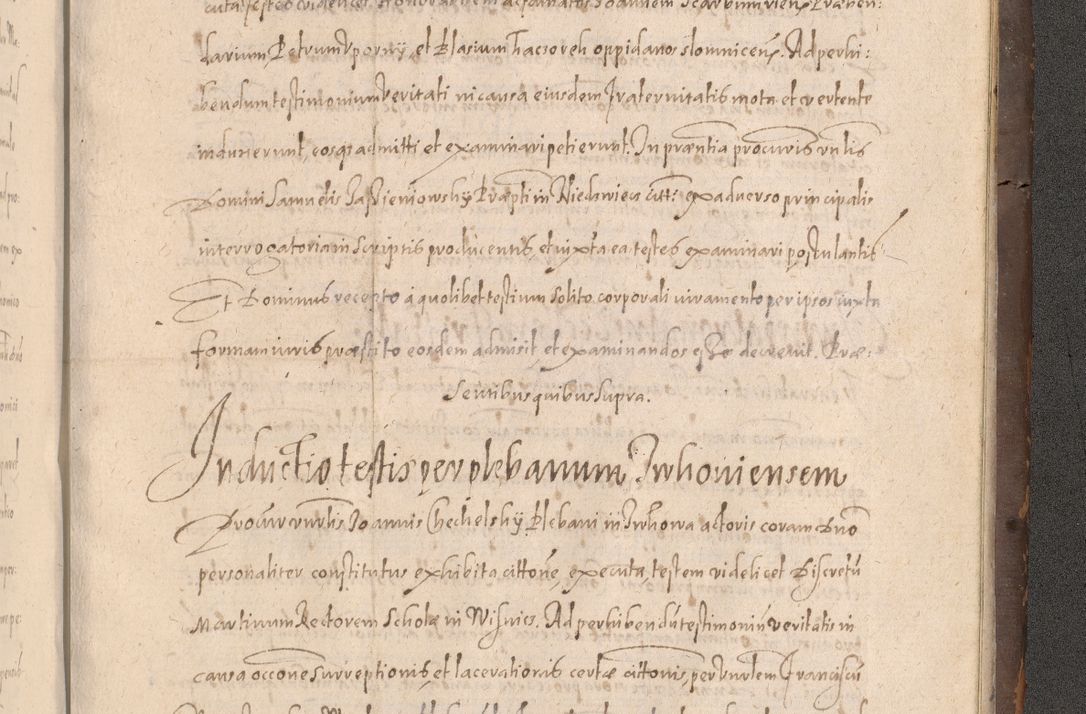 darium Petrum Vporny, et Blasium Thaczoreh oppidanos slomnicen̄. Ad perhi:
bendum testimonium veritati in causa eiusdem Fraternitatis mota et vertente
induxerunt, eosq3 admitti et examinari petierunt. In præntia procuris vnlis
Domini Samuelis Præpti in Niedzwiecz citti ex aduerso principalis
interrogatoria in scriptis producentis, et iuxta ea testes examinari postulantis
Et Dominus recepto à quolibet testium solito corporali iuramento per ipsos iuxta
formam iuris præstito eosdem admisit, et examinandos esse decreuit. Præ:
sentibus quibus supra.
Inductio testis per plebanum Irzhouiensem
Procur vnrlis Joannis Chechelsky Plebani in actoris coram Dno
personaliter constitutus exhibita citt̄one, executa testem videlicet Discretū
Martinum Rectorem Scholæ in Wisnicz. Ad perhibendū testimoniū veritatis in
causa occōne surreptionis, et lacerationis certæ citt̄onis, per vnrlem Franciscū